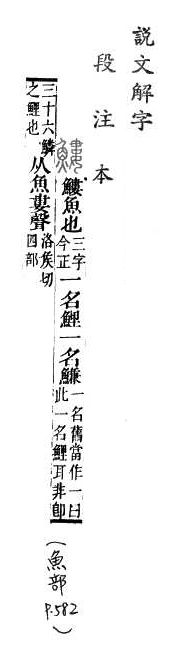 說文解字
段注本
䱾魚也三字今正一名鯉一名鰜一名舊當作一曰此一名鯉耳非卽
三十六鱗之鯉也从魚婁聲洛矦切四部
(魚部 P.582)